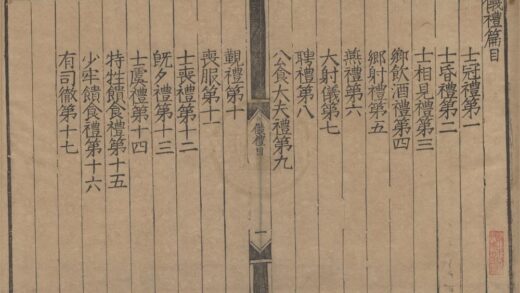 儀禮篇目
士冠禮第一
士昏禮第二
士相見禮第三
鄉飲酒禮第四
鄉射禮第五
燕禮第六
大射儀第七
聘禮第八
公食大夫禮第九
儀禮目
一
覲禮第十
喪服第十一
士喪禮第十二
旣夕禮第十三
士虞禮第十四
特牲饋食禮第十五
少牢饋食禮第十六
有司徹第十七